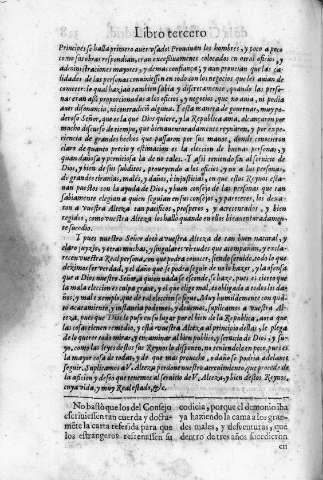 Libro tercero
Principes se hasta primero auer usado: Prouauan los hombres, y poco a poco
como sus obras respondian, eran excessiuamente colocados en otros oficios, y
administraciones mayores, y de mas confiança; y aun prouian que las ca-
lidades de las personas conuiniessen en todo con los negocios que les auian de
cometer: lo qual hazian tambien sabia y discretamente, quando las perso-
nas eran assi proporcionadas a los oficios, y negocios, que no auia, ni podia
auer disonancia, ni contradicion alguna. Y esta manera de gouernar, muy po-
deroso Señor, que es la que Dios quiere, y la Republica ama, alcançaron por
mucho discurso de tiempo, que bienauenturadamente reynaron, y por expe-
riencia de grandes hechos que passaron por sus manos, donde conocieron
claro de quanto precio y estimacion es la eleccion de buenas personas, y
quan dañosa y perniciosa la de no tales. Y assi teniendo fin al seruicio de
Dios, y bien de sus subditos, proueyendo a los oficios, y no a las personas,
de grandes tiranias, males, y daños, e injusticias, en que estos Reynos esta-
uan puestos con la ayuda de Dios, y buen consejo de las personas que tan
sabiamente elegian a quien seguian en sus consejos, y pareceres, los dexa-
ron a vuestra Alteza tan pacificos, prosperos, y acrecentados, y bien
regidos, como vuestra Alteza los hallò quando en ellos bienauenturadamen-
te sucedio.
Y pues nuestro Señor dotò a vuestra Alteza de tan buen natural, y
claro juyzio, y otras muchas, y singulares virtudes que acompañan, y
recen vuestra Real persona, con que podra conocer, siendo seruido, todo lo que
dezimos ser verdad, y el daño que se podra seguir de no lo hazer, y la ofensa
que a Dios nuestro Señor, a quien nada se esconde, se haze, pues es cierto que
la mala eleccion es culpa graue, y el que elige mal, es obligado a todos los da-
ños, y mal exemplo, que de tal eleccion se sigue. Muy humildemente con
do acatamiento, y instancia podemos, y deuemos, suplicamos a vuestra Al-
teza, pues que Dios le puso en su lugar por el bien de la Republica, antes que
las cosas tienen remedio, y està vuestra Alteza al principio dellas, le plega
de lo querer todo mirar, y encaminar al bien publico, y seruicio de Dios, y su-
yo, como las leyes destos sus Reynos lo disponen, no teniendolo en poco, pues es
la mayor cosa de todas, y de que mas prouecho, o daño se podria adelante
seguir. Suplicamos a V. Alteza perdone nuestro atreuimiento, que procede de
la aficion y deseo que tenemos al seruicio de V. Alteza, y bien destos Reynos,
cuya vida, y muy Real estado, &c.
No bastò que los del Consejo
escriuiessen tan cuerda y docta-
mẽte la carta referida para que
los estrangeros refrenassen su
codicia, porque el demonio iba
ya haziendo la cama a los gran-
des males, y desuenturas, que
dentro de tres años sucedieron
en